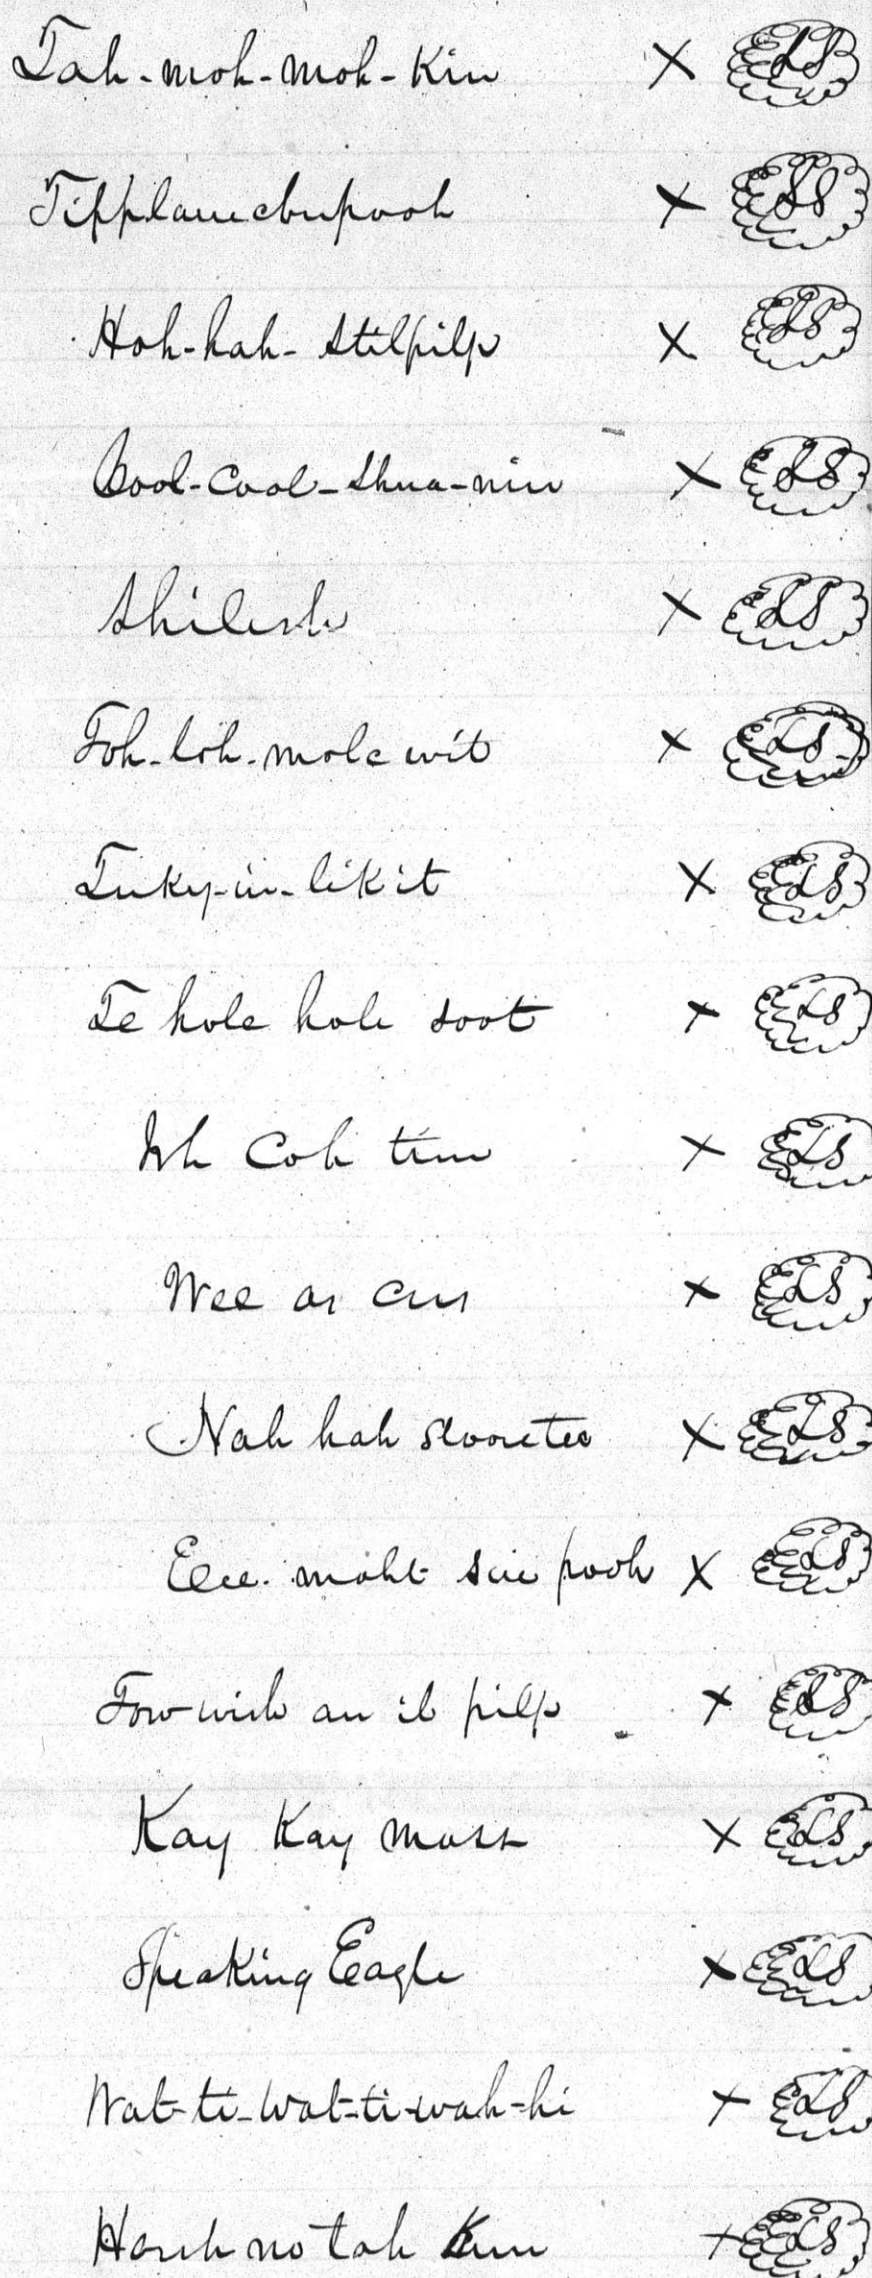 Tah-moh-moh-Kin X LS
Tipplanecbupooh X LS
Hah-hah-Stilpilp X LS
Cool-cool-shua-nin X LS
Shilish X LS
Toh-toh-molewit X LS
Tuky-in-lik-it X LS
Te hole hole soot X LS
Ish Coh tim X LS
Wee as cus X LS
Nah hah sloore tee X LS
Eee-maht sin pooh X LS
Tow wish au il pilp X LS
Kay Kay mass X LS
Speaking Eagle X LS
Wat-ti-Wat-ti-wah-hi X LS
Howh no tah Kun X LS